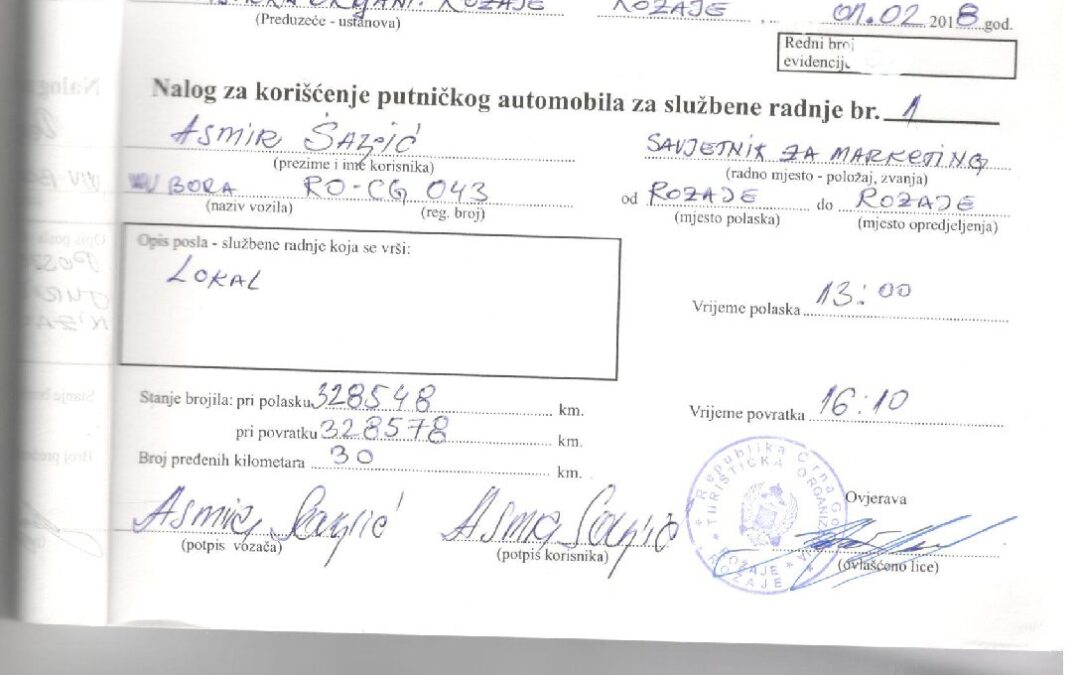 ORGANI. ROŽAJE ROŽAJE, 01.02 2018 god.
(Preduzeće - ustanova)
Redni broj
evidencije
Nalog za korišćenje putničkog automobila za službene radnje br. 1
ASMIR SAVJETNIK ZA MARKETING
(prezime i ime korisnika) (radno mjesto - položaj, zvanja)
BORA RO-CG 043 od ROZAJE do ROZAJE
(naziv vozila) (reg. broj) (mjesto polaska) (mjesto opredjeljenja)
Opis posla - službene radnje koja se vrši:
LOKAL
Vrijeme polaska 13:00
Stanje brojila: pri polasku 328548 km. Vrijeme povratka 16:10
pri povratku 328578 km.
Broj pređenih kilometara 30 km.
Republika Crna Go
TURISTIČKA ORGANIZ
ROŽAJE
ROŽAJE
Ovjerava
Asmir
(potpis vozača) (potpis korisnika) (ovlašćeno lice)